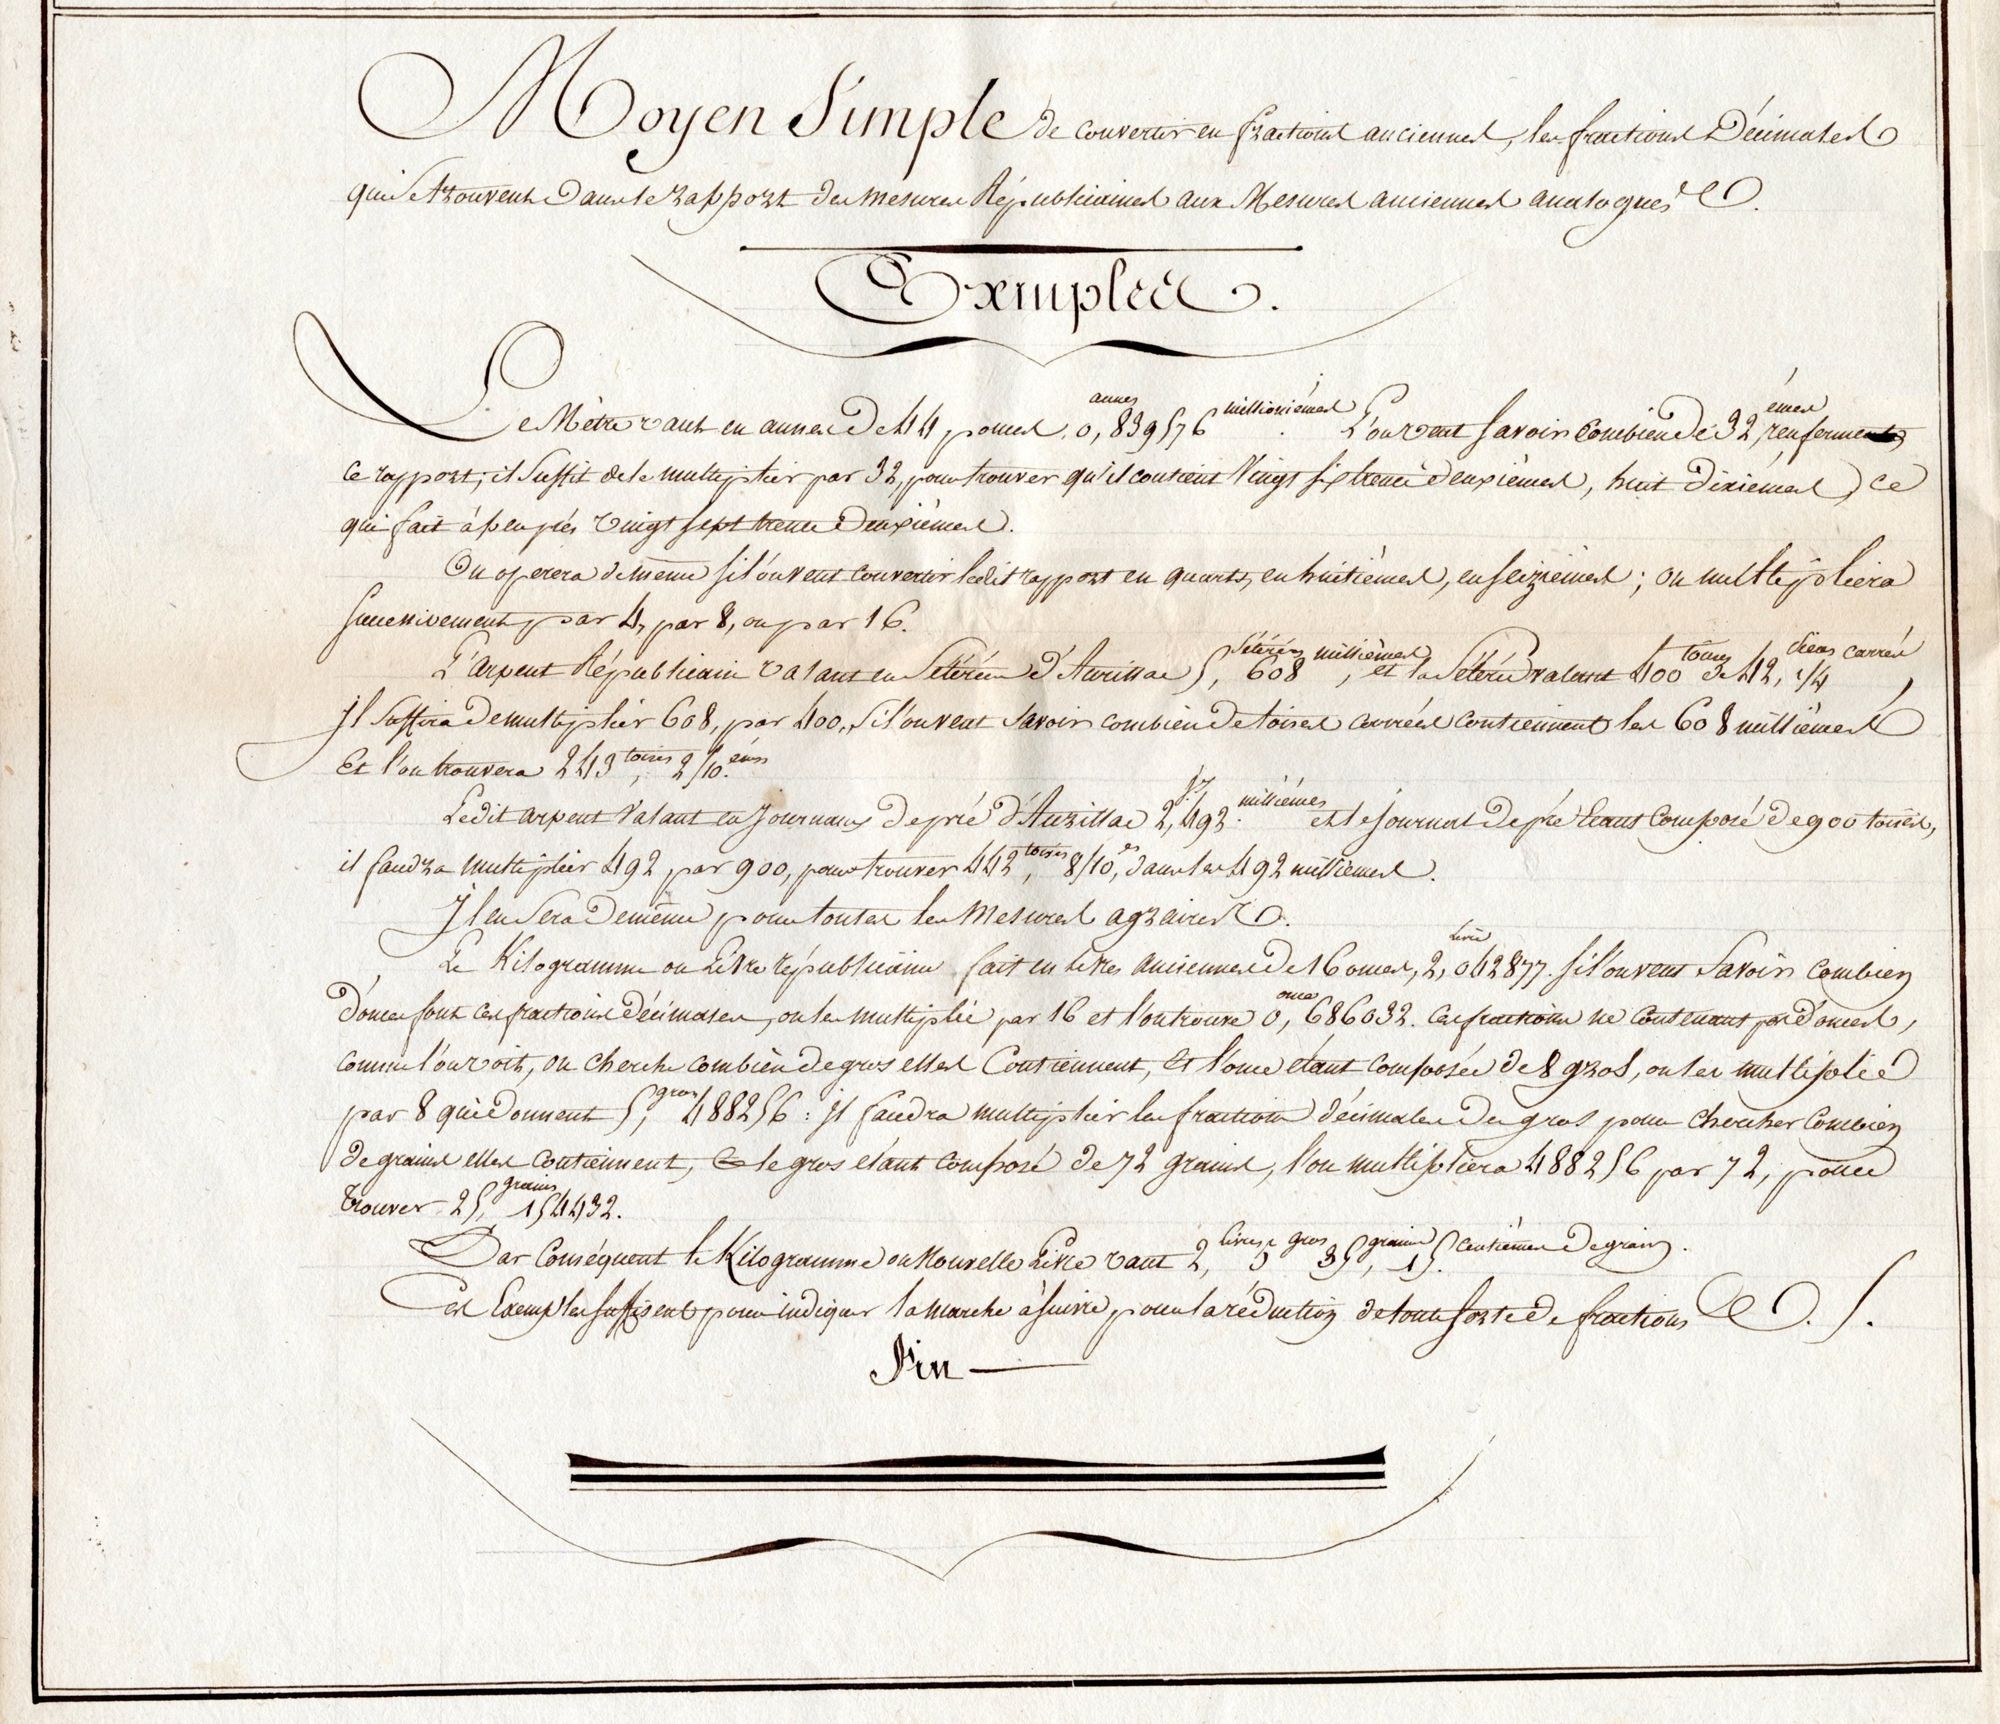 Moyen Simple de convertir en fractions anciennes, les fractions Décimales
qui se trouvent dans le rapport des mesures Républicaines aux Mesures anciennes analogues.
Exemples.
Le Mètre vaut en aunes de 44 pouces 0, aunes 839576 millionièmes. L'on veut savoir combien de 32 émes renferme
ce rapport; il suffit de le multiplier par 32, pour trouver qu'il contient Vingt six trente deuxièmes, huit dixièmes, ce
qui fait à peu près vingt sept trente deuxièmes.
On operera de même si l'on veut convertir ledit rapport en quarts, en huitièmes, en seizièmes; on multipliera
successivement par 4, par 8, ou par 16.
L'arpent Républicain valant en Setérées d'Aurillac 5, Setérées 608 millièmes, et la Setérée valant 400 toises de 42, 1/4 carrés,
Il suffira de multiplier 608, par 400, si l'on veut savoir combien de toises carrées contiennent les 608 millièmes
Et l'on trouvera 243 toises, 2/10. émes
Ledit arpent valant en journaux de pré d'Aurillac 2, 492 millièmes et le journal de pré étant composé de 900 toises,
il faudra multiplier 492 par 900, pour trouver 442 toises, 8/10, es dans les 492 millièmes.
Il en sera de même pour toutes les Mesures agraires.
Le Kilogramme ou Livre républicaine fait en livres anciennes de 16 onces, 2, livres 042877. si l'on veut Savoir combien
d'onces font ces fractions décimales, on les multiplie par 16 et l'on trouve 0, once 686032. Ces fractions ne contenant pas d'onces,
comme l'on voit, on cherche combien de gros elles Contiennent, et l'once étant composée de 8 gros, on les multiplie
par 8 qui donnent 5, gros 488256: il faudra multiplier les fractions décimales du gros pour chercher combien
de grains elles contiennent, et le gros étant composé de 72 grains, l'on multipliera 488256 par 72, pour
trouver 35, grains 154432.
Par conséquent le Kilogramme ou Nouvelle Livre vaut 2, livres 5 gros 35, grains 15. centièmes de grain.
Ces Exemples suffisent pour indiquer la marche à suivre pour la réduction de toute sorte de fractions
Fin